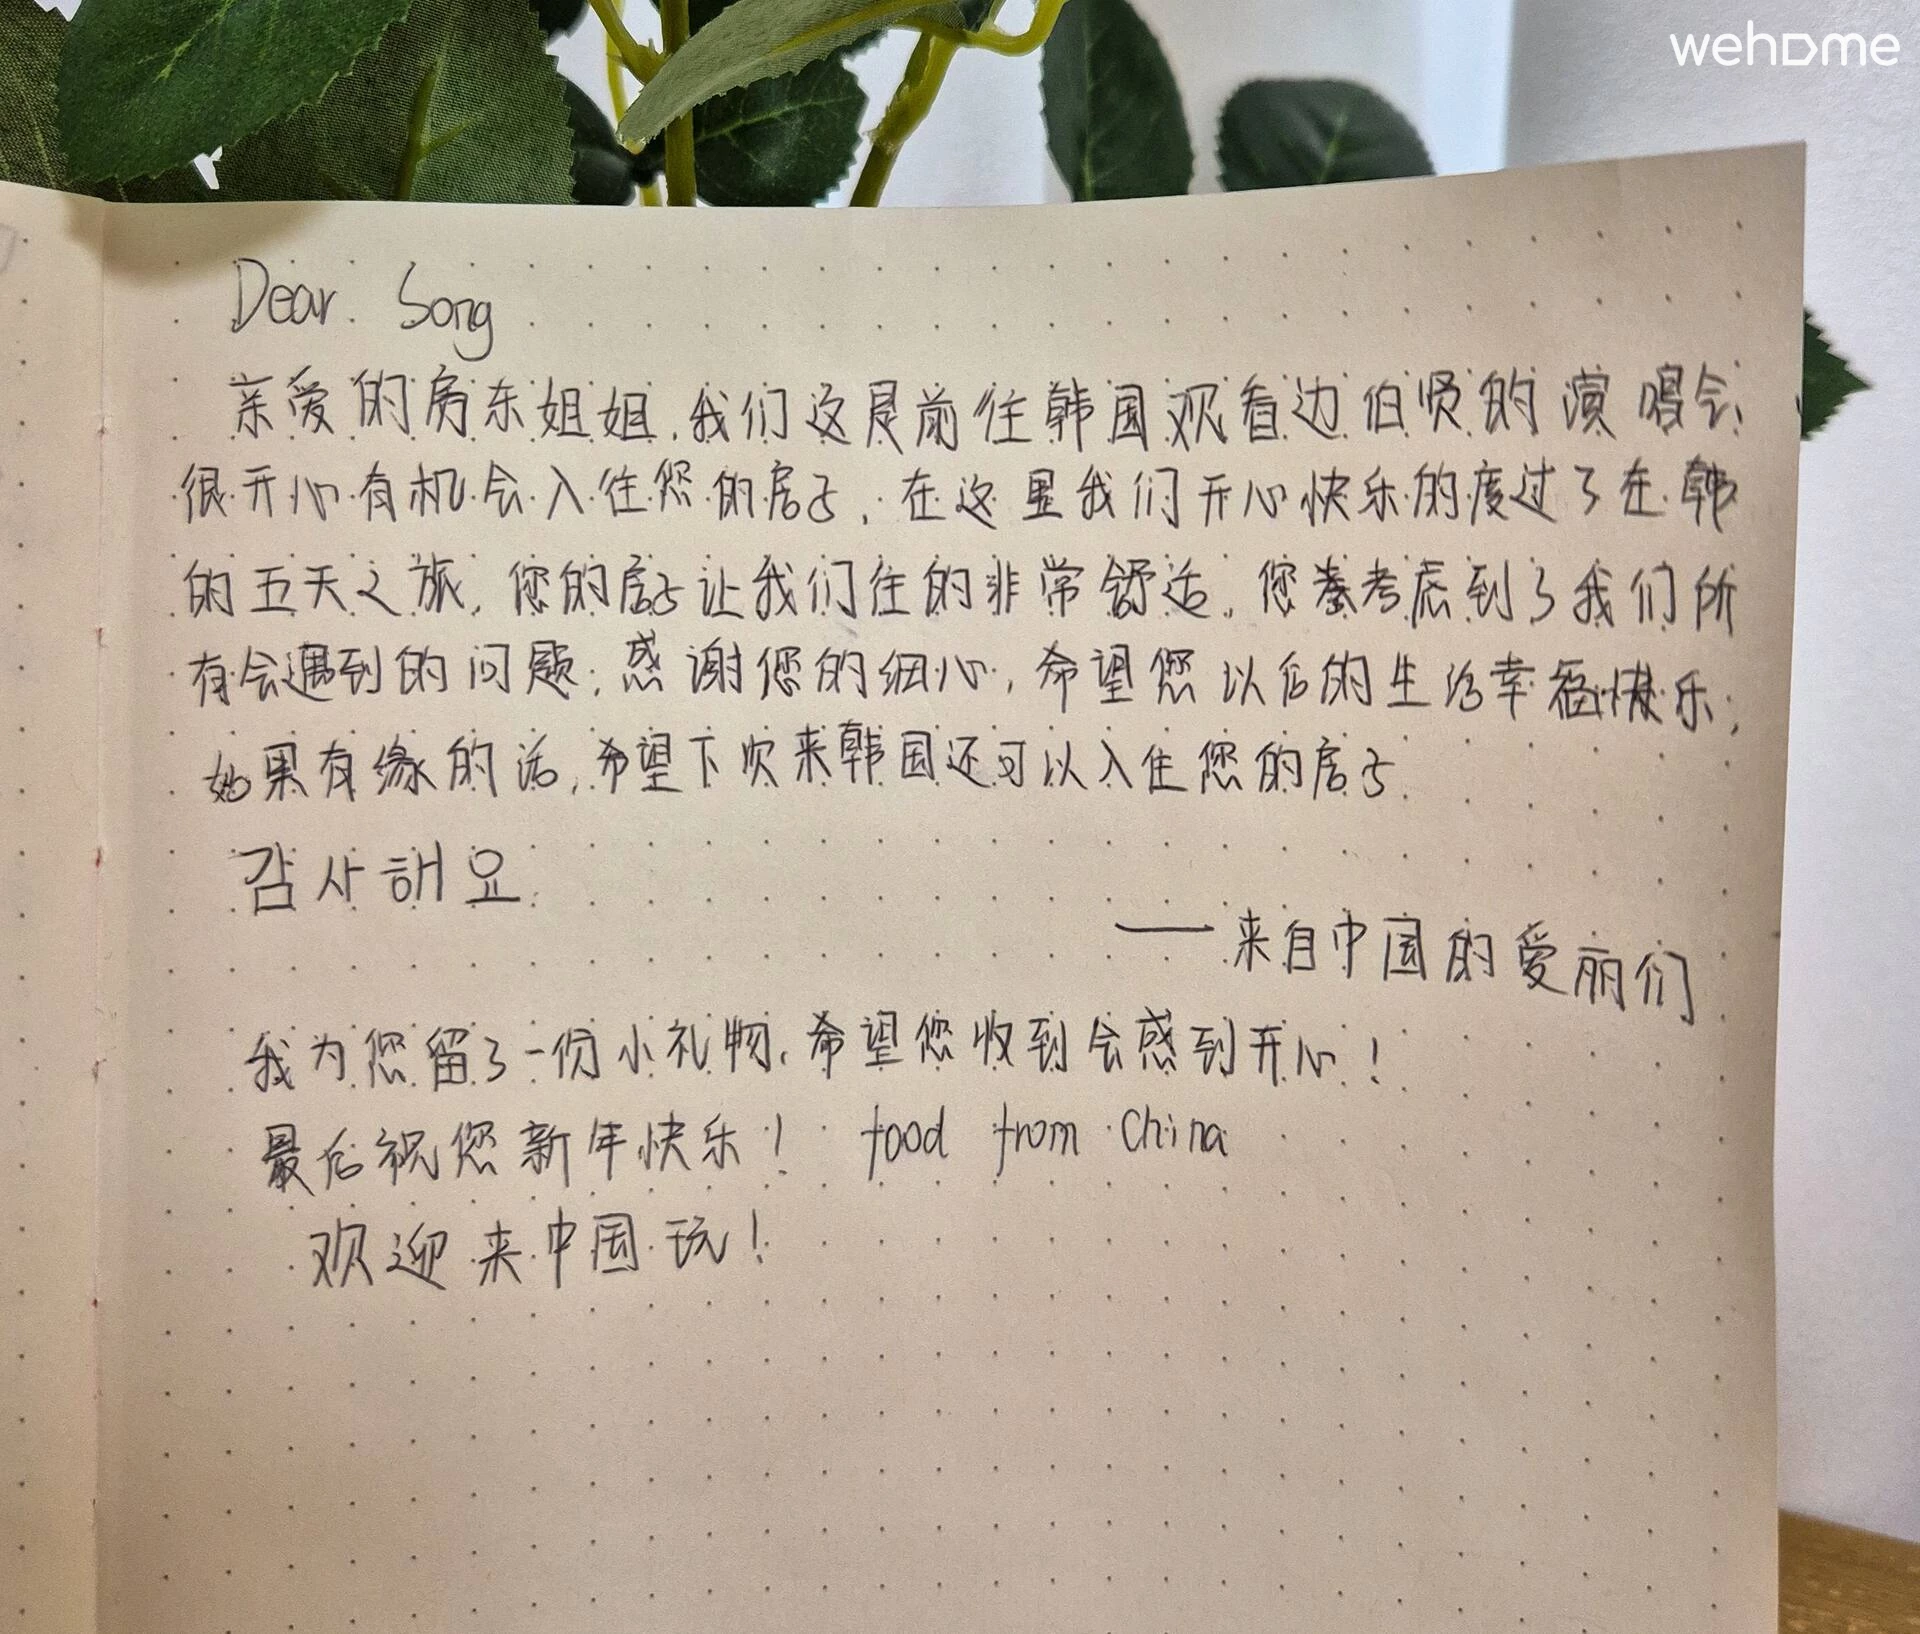 wehome
Dear. Song
亲爱的房东姐姐,我们这是前往韩国观看边伯贤的演唱会,
很开心有机会入住您的房子,在这里我们开心快乐的度过了在韩
的五天之旅,您的房子让我们住的非常舒适,您考虑到了我们所
有会遇到的问题,感谢您的细心,希望您以后的生活幸福快乐,
如果有缘的话,希望下次来韩国还可以入住您的房子.
감사해요.
——来自中国的爱丽们
我为您留了一份小礼物,希望您收到会感到开心!
最后祝您新年快乐! food from China
欢迎来中国玩!